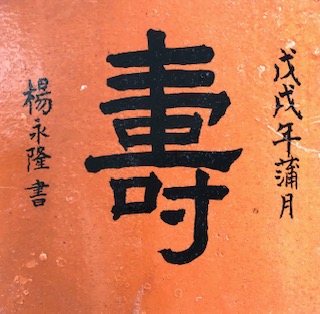 戊戌年蒲月
壽
楊永隆書